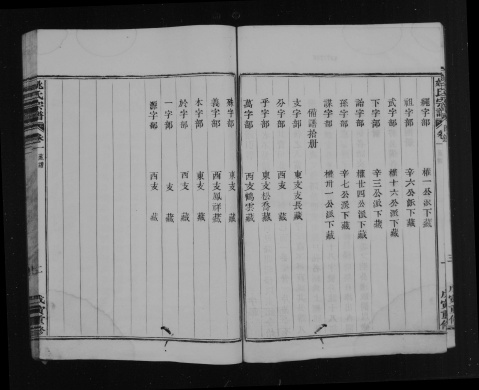 繩字部 權一公派下藏
祖字部 辛六公派下藏
武字部 權十六公派下藏
下字部 辛三公派下藏
詒字部 權廿四公派下藏
孫字部 辛七公派下藏
謀字部 權卅一公派下藏
備譜拾册
支字部 東支支長藏
分字部 西支 藏
乎字部 東支松喬藏
萬字部 西支鶴雲藏
殊字部 東支 藏
義字部 西支鳳祥藏
本字部 東支 藏
於字部 西支 藏
一字部 支 藏
西支 藏
姚氏宗譜
戊寅重修